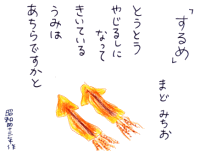 「するめ」
まど みちお
とうとう
やじるしに
なって
きいている
うみは
あちらですかと